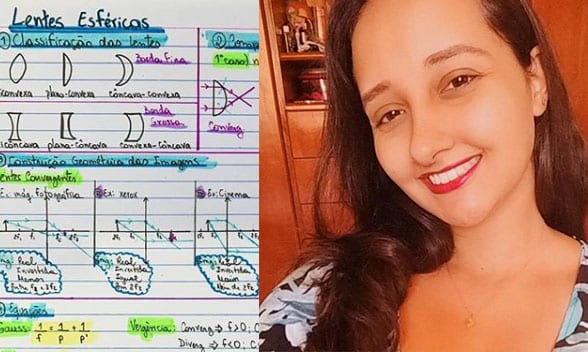 Lentes Esféricas
① Classificação das lentes
Borda Fina
plano-convexa côncavo-convexa
Borda
Grossa
plano-côncava convexo-côncava
② Comp
1º caso)
Converg
Construção Geométrica das Imagens
entes Convergentes
Ex: máq. fotográfica
Ex: xerox
Ex: Cinema
Real
Invertida
Menor
Real
Invertida
Igual
Real
Invertida
Maior
Equações
Gauss: 1/f = 1/p + 1/p'
Vergência: Converg ⇒ f>0; C
Diverg ⇒ f<0; C